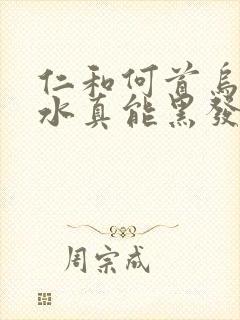 仁和何首乌
水真能黑發
周宗咸